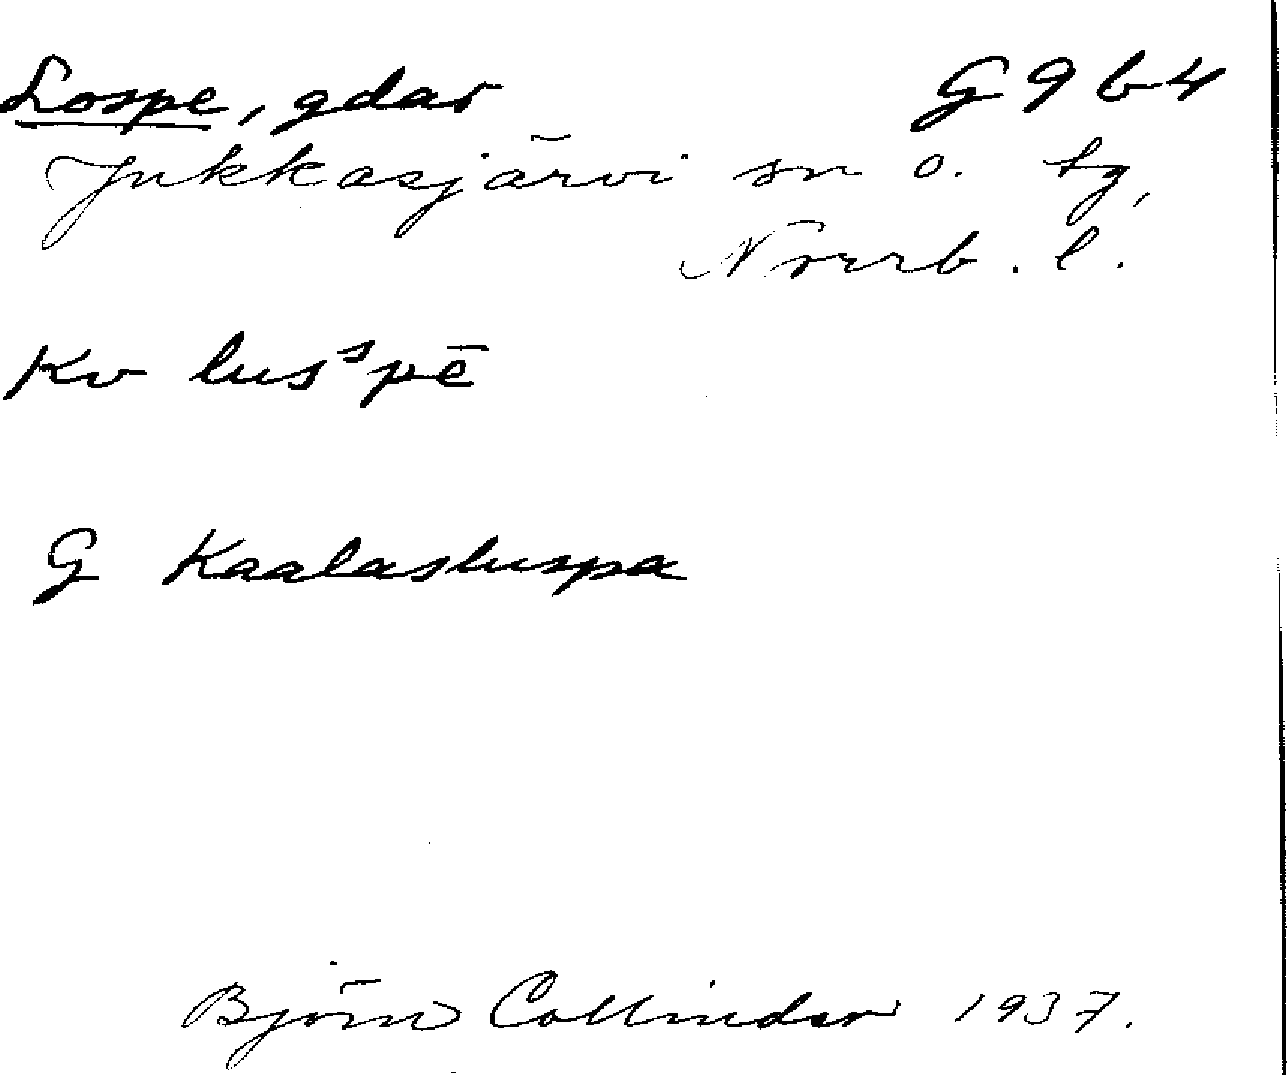 Lospe, gdar G 9 b 4
Jukkasjärvi sn o. tg,
Norrb. l.
Kv lusˢpē
G Kaalasluspa
Björn Collinder 1937.